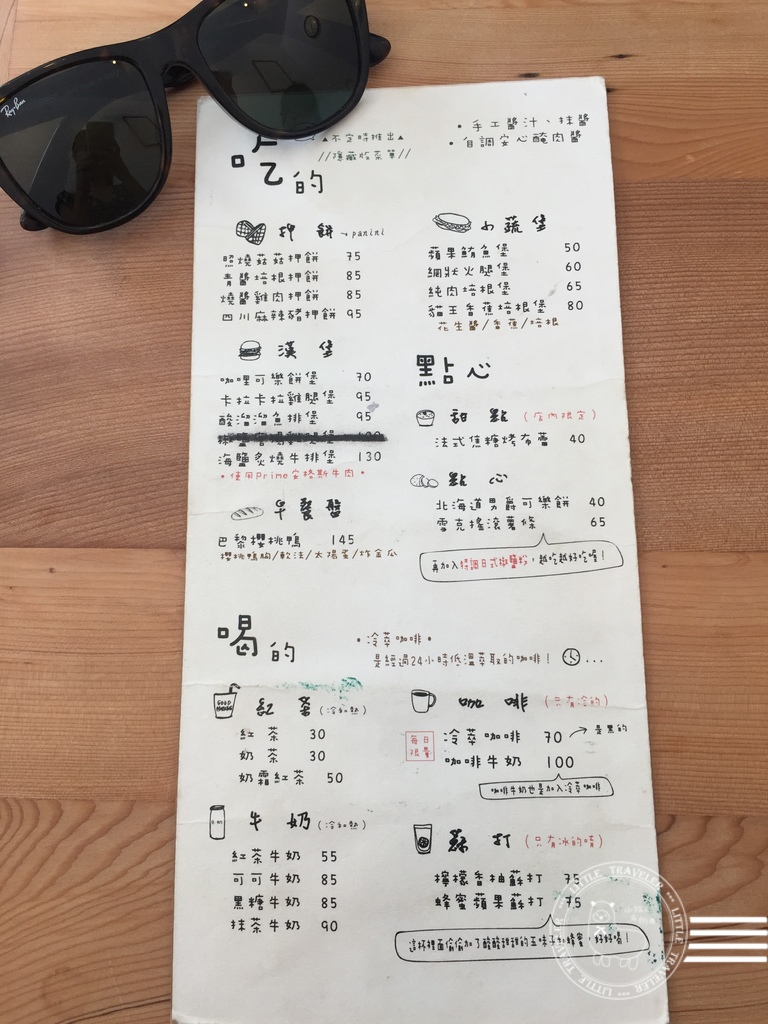 Ray-Ban
吃的
▲不定時推出▲
//隱藏版菜單//
• 手工醬汁、抹醬
• 自調安心醃肉醬
押餅 → panini
照燒菇菇押餅 75
青醬培根押餅 85
燒醬雞肉押餅 85
四川麻辣豬押餅 95
漢堡
咖哩可樂餅堡 70
卡拉卡拉雞腿堡 95
酸溜溜魚排堡 95
海鹽炙燒牛排堡 130
• 使用Prime安格斯牛肉 •
早餐盤
巴黎櫻桃鴨 145
櫻桃鴨胸/軟法/太陽蛋/炸金瓜
小蔬堡
蘋果鮪魚堡 50
網狀火腿堡 60
純肉培根堡 65
貓王香蕉培根堡 80
花生醬/香蕉/培根
點心
甜點 (店內限定)
法式焦糖烤布蕾 40
點心
北海道男爵可樂餅 40
雪克搖滾薯條 65
再加入特調日式椒鹽粉，越吃越好吃喔！
喝的
• 冷萃咖啡 •
是經過24小時低溫萃取的咖啡！ ...
GOOD MORNING
紅茶 (冷和熱)
紅茶 30
奶茶 30
奶霜紅茶 50
牛奶 (冷和熱)
紅茶牛奶 55
可可牛奶 85
黑糖牛奶 85
抹茶牛奶 90
咖啡 (只有冷的)
每日限量
冷萃咖啡 70 → 是黑的
咖啡牛奶 100
咖啡牛奶也是加入冷萃咖啡
蘇打 (只有冰的唷)
檸檬香柚蘇打 75
蜂蜜蘋果蘇打 75
這杯裡面偷偷加了酸酸甜甜的五味子和蜂蜜，好好喝！
LITTLE TRAVELER *** LITTLE TRAVELER *** LITTLE TRAVELER